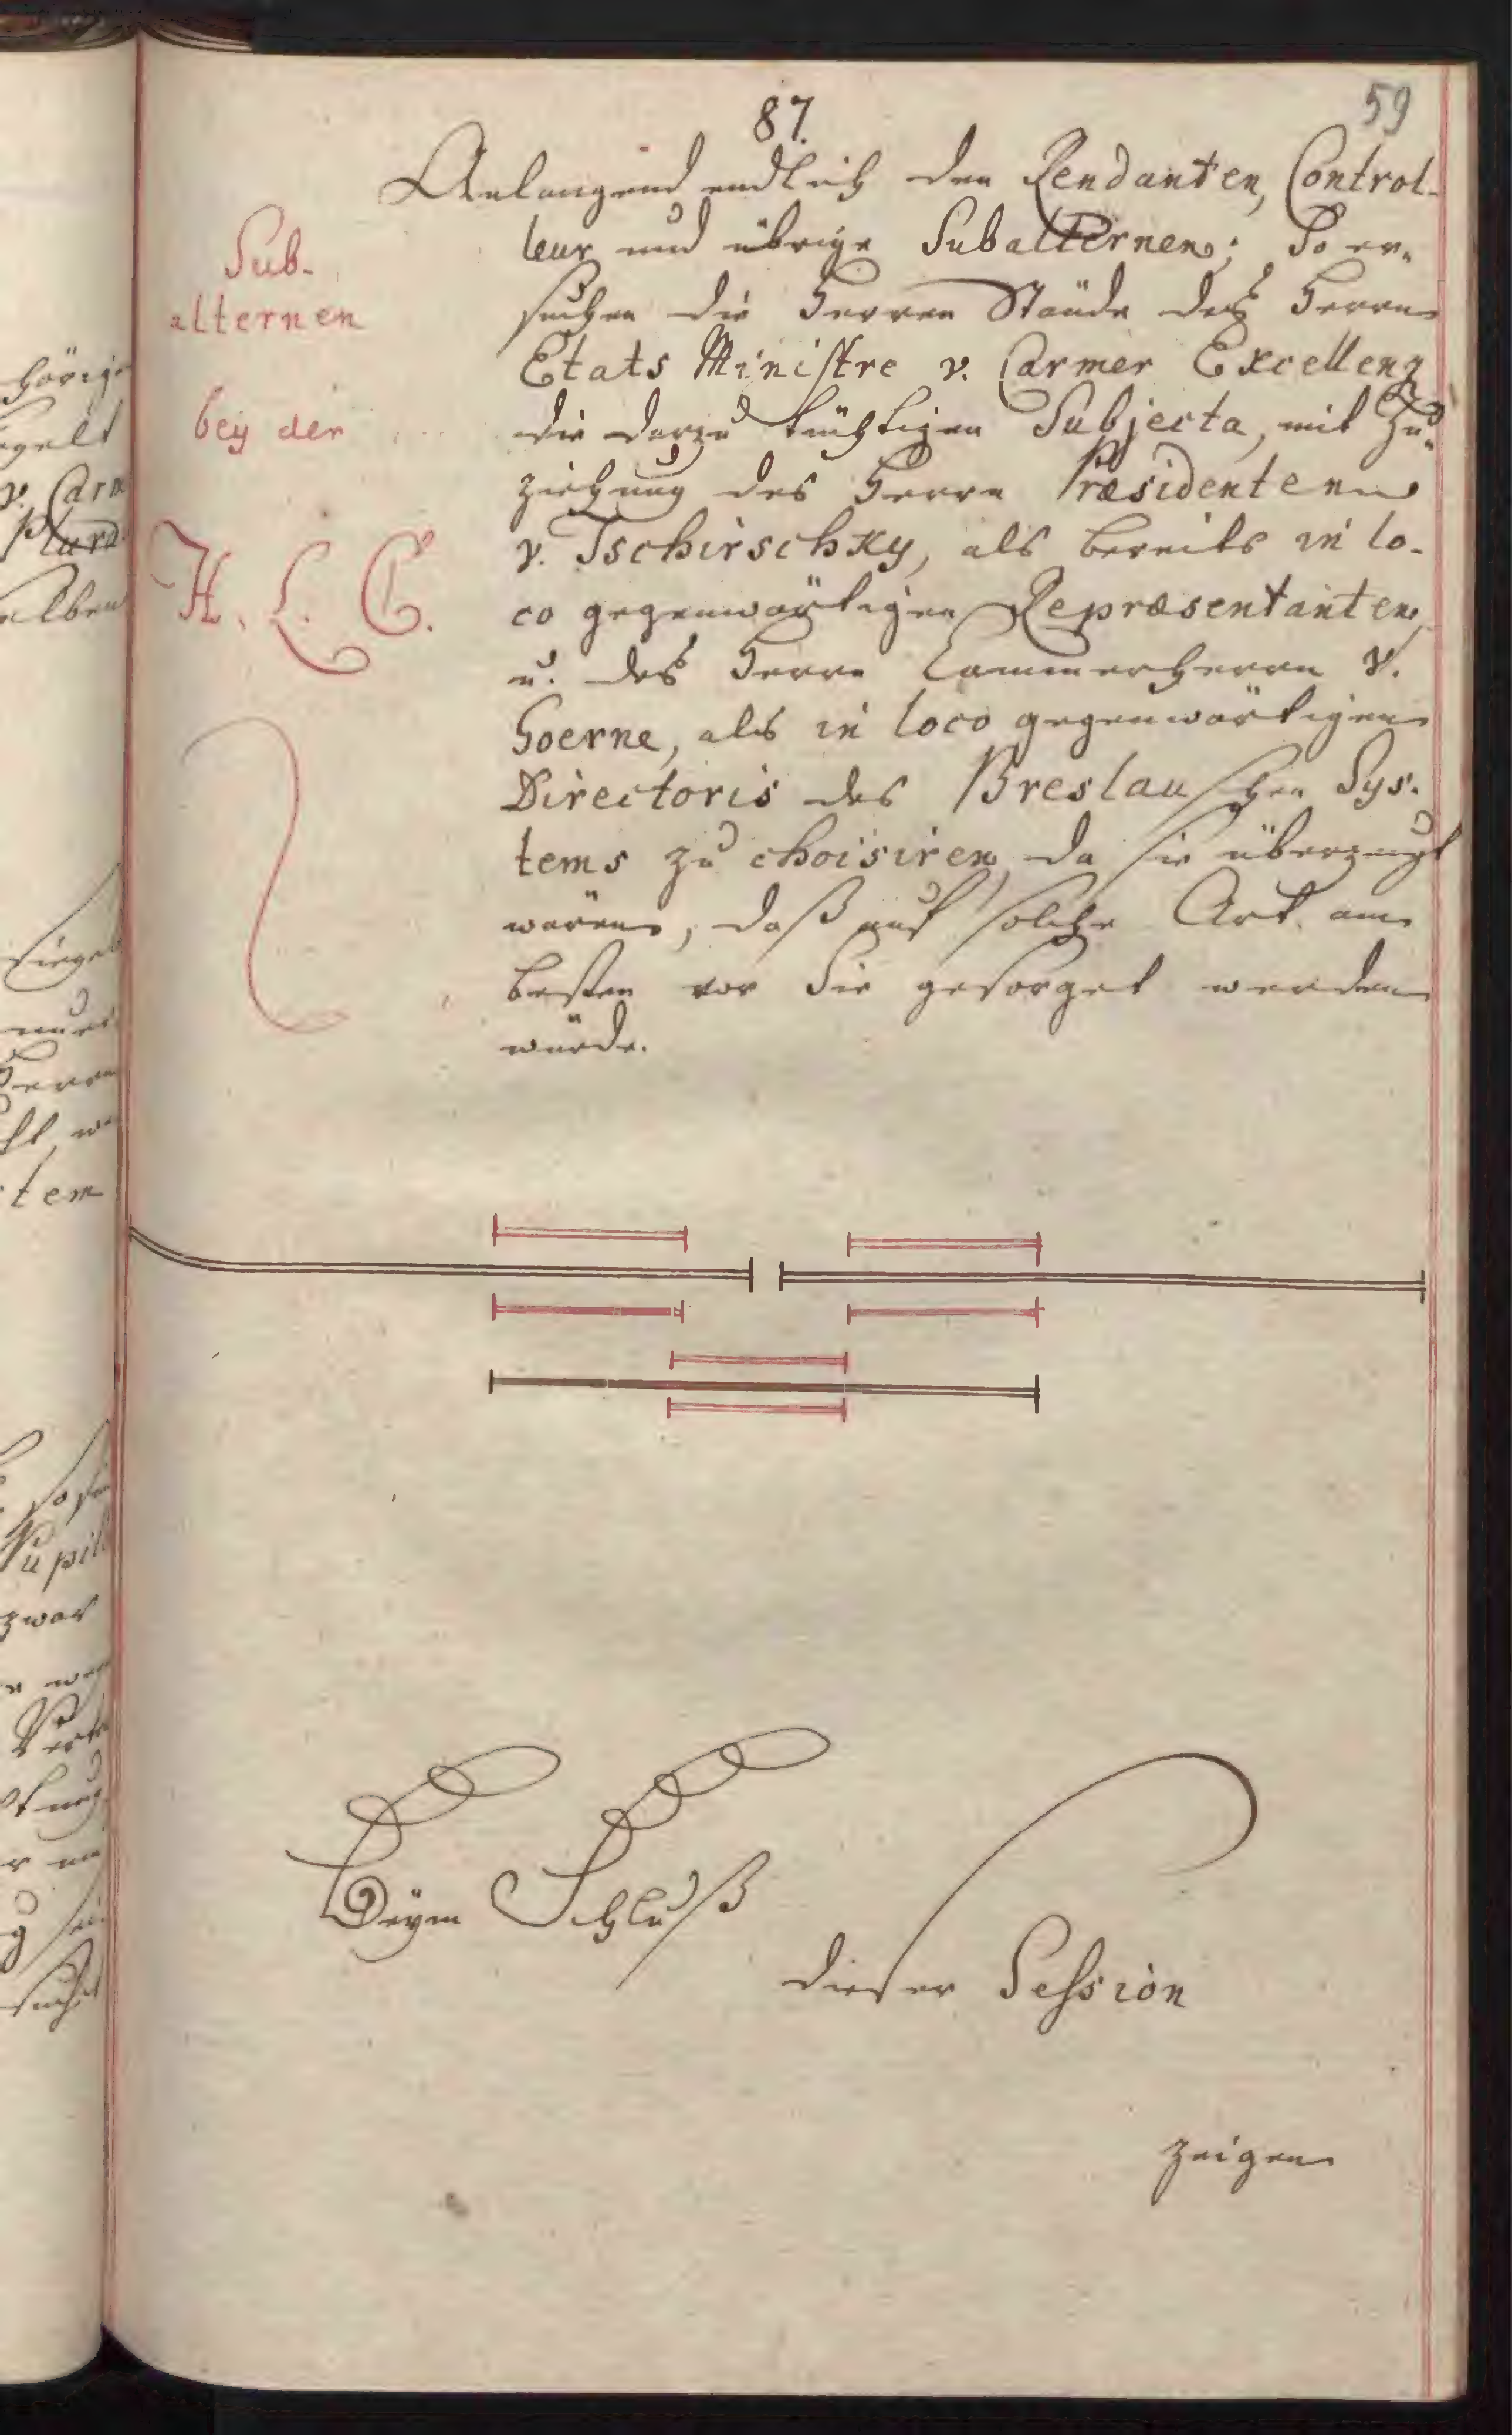 87.
59
Sub-
alternen
bey der
H. L. C.
Anlangend endlich den Rendanten, Control-
leur und übrige Subalternen; So er-
suchen die Herren Stände des Herrn
Etats Ministre v. Carmer Excellenz
die darzu tüchtigen Subjecta, mit Zu-
ziehung des Herrn Præsidenten
v. Tschirschky, als bereits in lo-
co gegenwärtigen Repræsentanten,
u. des Herrn Cammerherrn v.
Goerne, als in loco gegenwärtigen
Directoris des Breslauschen Sys-
tems zu choisiren, da sie überzeugt
wären, daß auf solche Art am
besten vor Sie gesorget werden
würde.
Beym Schluß
dieser Session
zeigen
hörige
v. Carm
elben
Siegel
Herrn
tem
Pupill
zwar